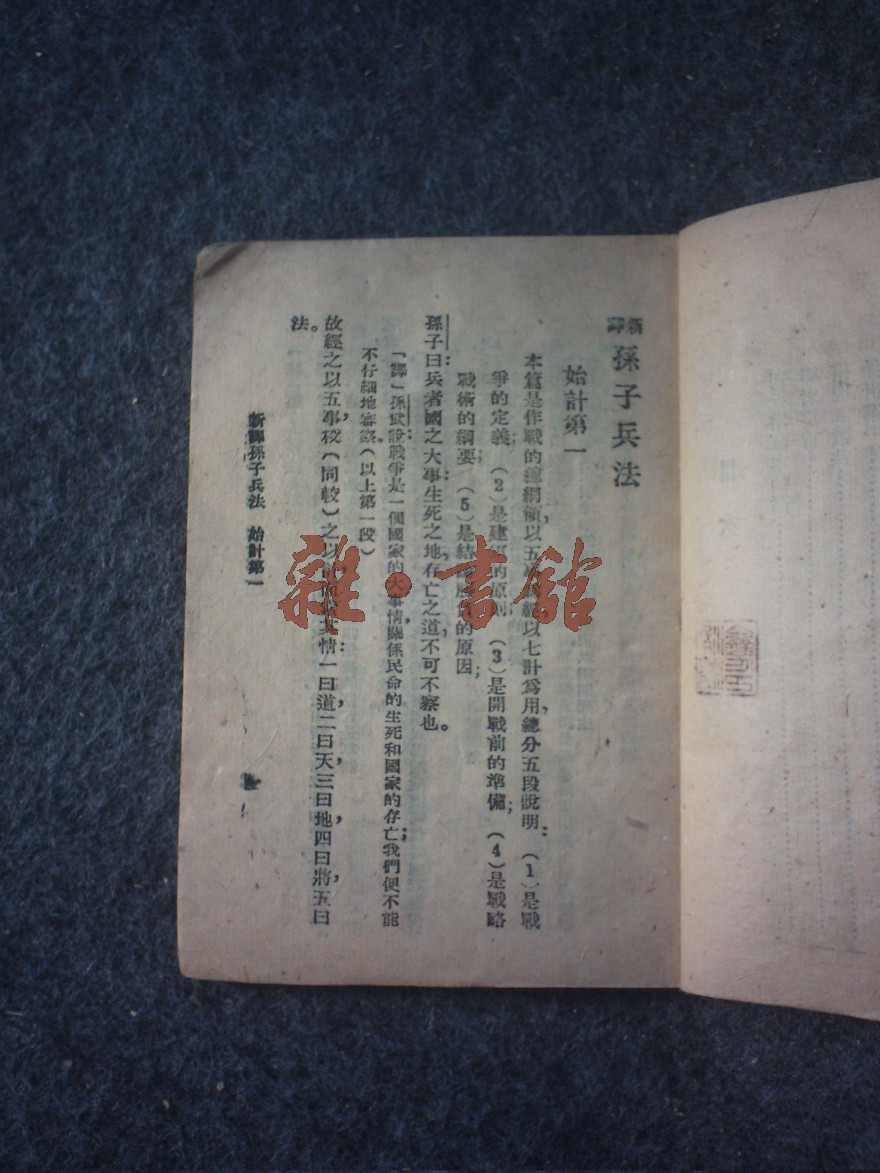 新譯 孫子兵法
始計第一
本篇是作戰的總綱領,以五事為經以七計為用,總分五段說明:(1)是戰
爭的定義;(2)是建軍的原則;(3)是開戰前的準備;(4)是戰略
戰術的綱要;(5)是結論勝負的原因;
孫子曰:兵者國之大事:生死之地,存亡之道,不可不察也。
「譯」孫武說:戰爭是一個國家的大事情,關係民命的生死和國家的存亡;我們便不能
不行細地審察。(以上第一段)
故經之以五事,校(同較)之以計而索其情:一曰道,二曰天,三曰地,四曰將,五曰
法。
新譯孫子兵法 始計第一
雜·書館